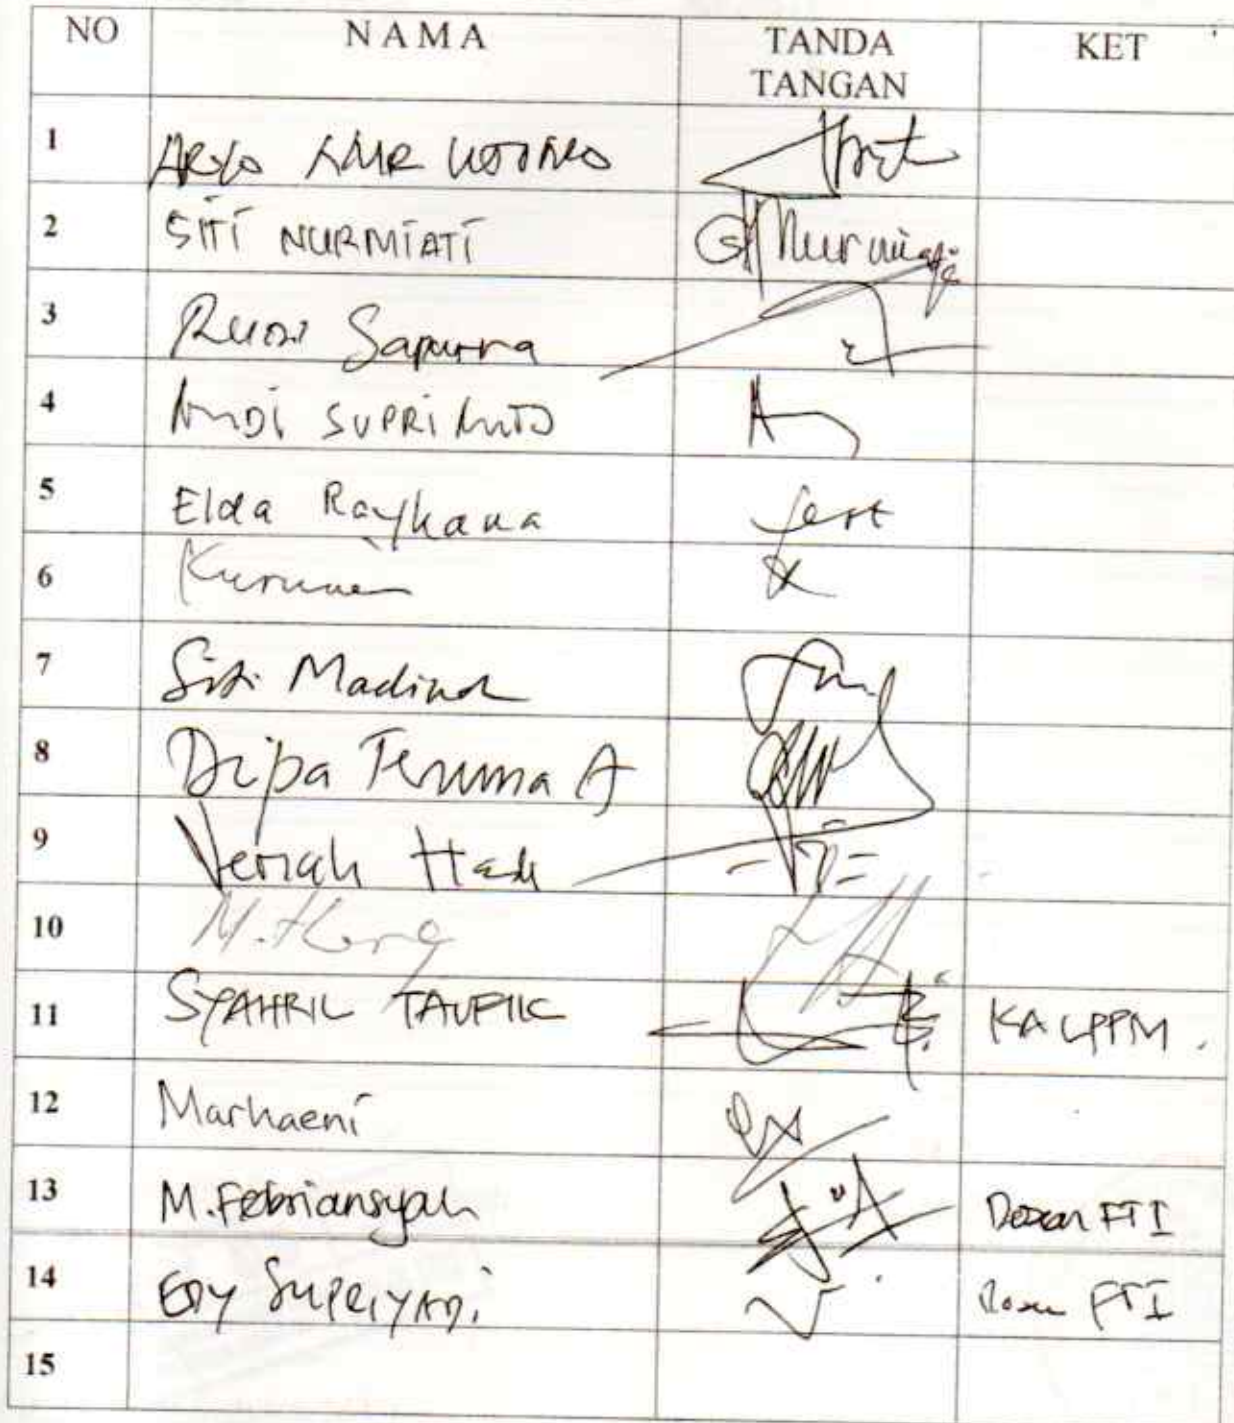 NO NAMA TANDA TANGAN KET
1 ARYO NUR UTOMO
2 SITI NURMIATI Nurmiati
3 Rudi Saputra
4 ANDI SUPRIANTO
5 Elda Raykana
6 Kurniawan
7 Siti Madinah
8 Dipa Teruna A
9 Veriah Hadi
10
11 SYAHRIL TAUFIK KA LPPM.
12 Marhaeni
13 M. Febriansyah Dosen FTI
14 EDY SUPRIYADI Dosen FTI
15